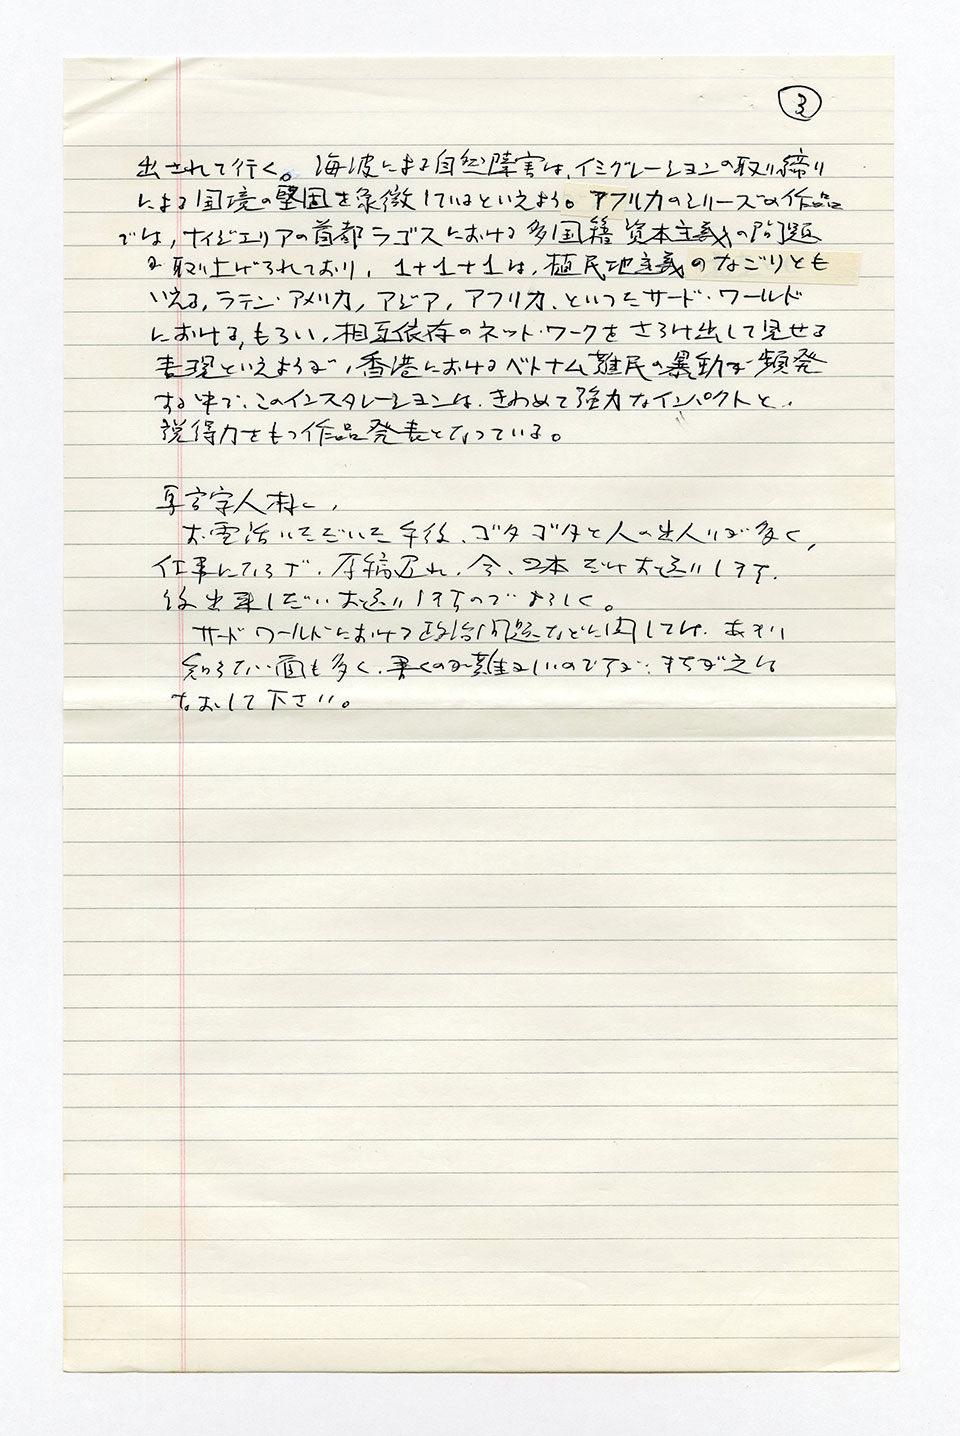 3
出されて行く。海波による自然障害は、イミグレーションの取り締り
による国境の堅固を象徴しているといえよう。アフリカのシリーズの作品
では、ナイジェリアの首都ラゴスにおける多国籍資本主義の問題
が取り上げられており、1+1+1は、植民地主義のなごりとも
いえる、ラテン・アメリカ、アジア、アフリカ、といったサード・ワールド
における、もろい、相互依存のネット・ワークをさらけ出して見せる
表現といえようが、香港におけるベトナム難民の暴動が頻発
する中で、このインスタレーションは、きわめて強力なインパクトと、
説得力をもつ作品発表となっている。
お電話いただいた午後、ゴタゴタと人の出入りが多く、
仕事にならず、原稿遅れ、今、2本だけお送りします。
後出来しだいお送りしますのでよろしく。
サードワールドにおける政治問題などに関しては、あまり
知らない面も多く、書くのが難しいのですが、まちがえは
なおして下さい。